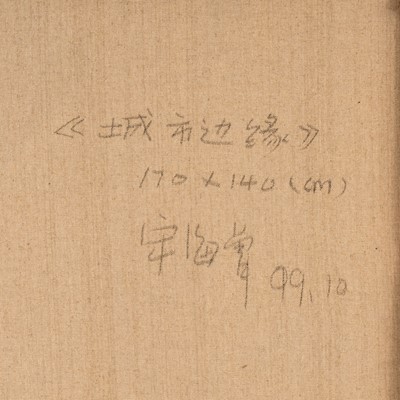 《城市边缘》
170×140(cm)
宋海
99.10